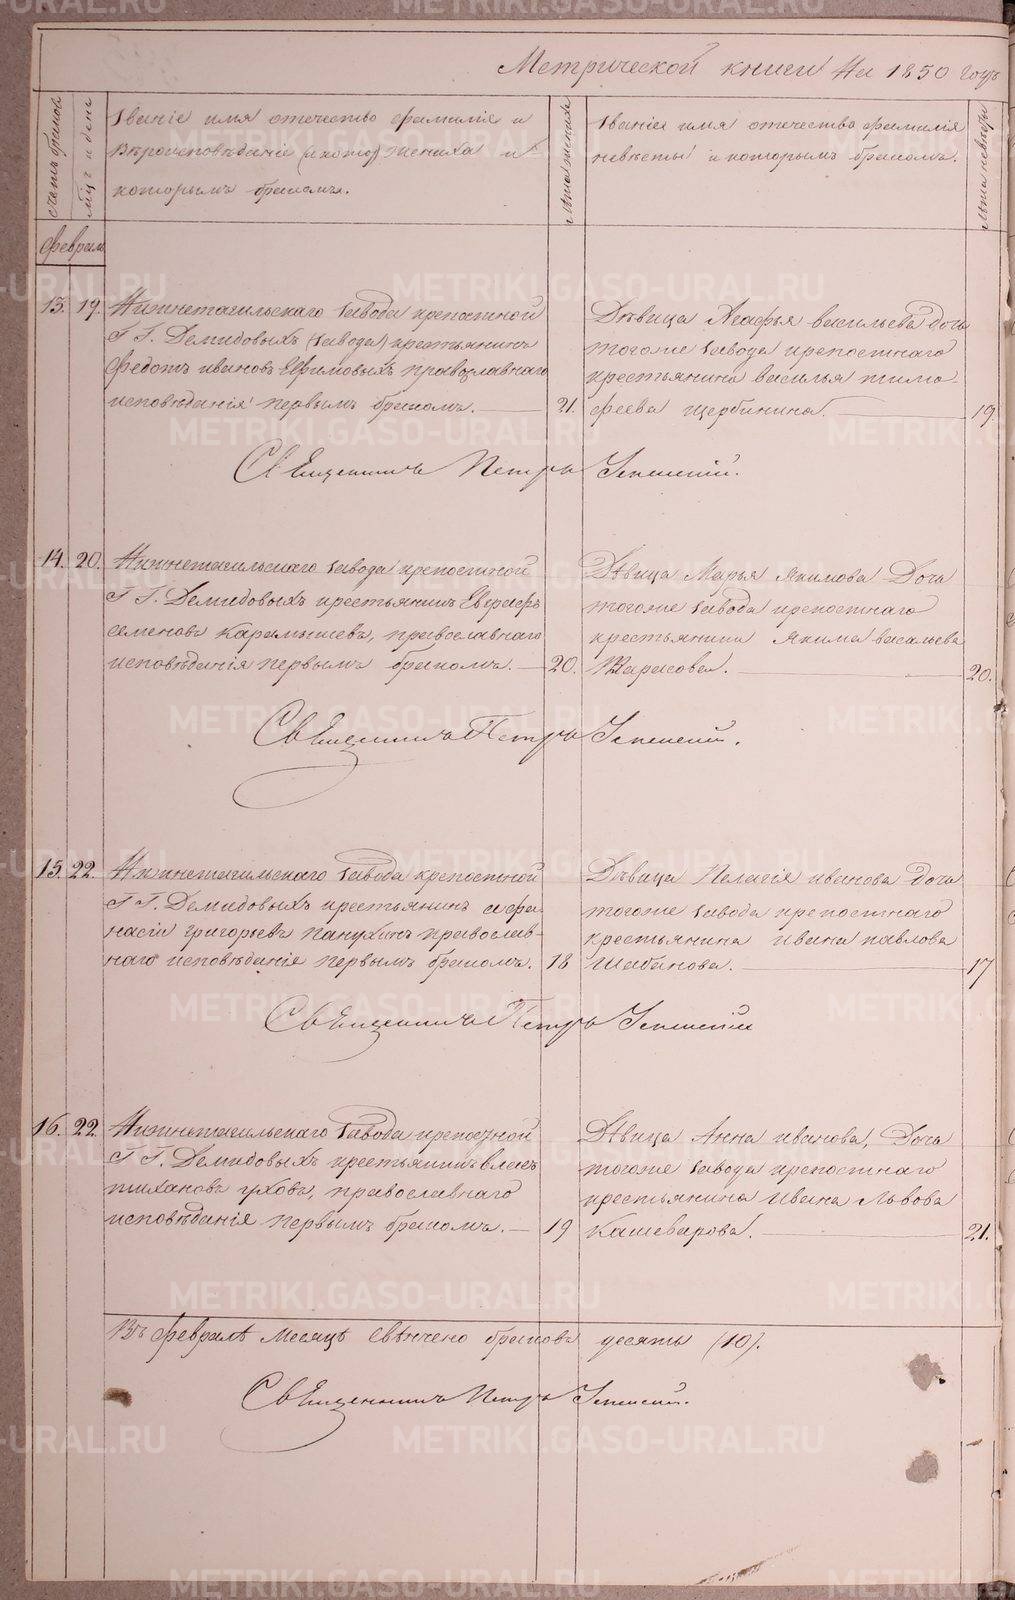 Метрической книги На 1850 годъ
счетъ браковъ
мѣс. и день
Званіе имя отечество фамиліе и
Вѣроисповѣданіе жениха и
которымъ бракомъ.
Лѣта жениха
Званіе имя отечество фамилія
невѣсты и которымъ бракомъ.
Лѣта невѣсты
Февраль
13. 19. Нижнетагильскаго завода крепостной
Г Г. Демидовыхъ (завода) крестьянинъ
Федотъ ивановъ Ефимовыхъ православнаго
исповѣданія первымъ бракомъ. 21.
Дѣвица Агафья васильева дочь
тогоже завода крепостнаго
крестьянина василья тимо-
феева щербинина. 19.
Священникъ Петръ Успенскій.
14. 20. Нижнетагильскаго завода крепостной
Г Г. Демидовыхъ крестьянинъ Евграфъ
семеновъ Карамышевъ, православнаго
исповѣданія первымъ бракомъ. 20.
Дѣвица Марья Якимова Дочь
тогоже завода крепостнаго
крестьянина Якима васильева
Тарасова. 20.
Священникъ Петръ Успенскій.
15. 22. Нижнетагильскаго завода крепостной
Г Г. Демидовыхъ крестьянинъ афа-
насіи григорьевъ Панухинъ православ-
наго исповѣданія первымъ бракомъ. 18
Дѣвица Пелагія иванова дочь
тогоже завода крепостнаго
крестьянина ивана павлова
Шабанова. 17
Священникъ Петръ Успенскій
16. 22. Нижнетагильскаго завода крепостной
Г Г. Демидовыхъ крестьянинъ власъ
тихановъ уховъ, православнаго
исповѣданія первымъ бракомъ. 19
Дѣвица Анна иванова, Дочь
тогоже завода крепостнаго
крестьянина Ивана Львова
Кашеварова. 21.
Въ февралѣ месяцѣ Свѣнчено браковъ десять (10).
Священникъ Петръ Успенскій.
METRIKI.GASO-URAL.RU